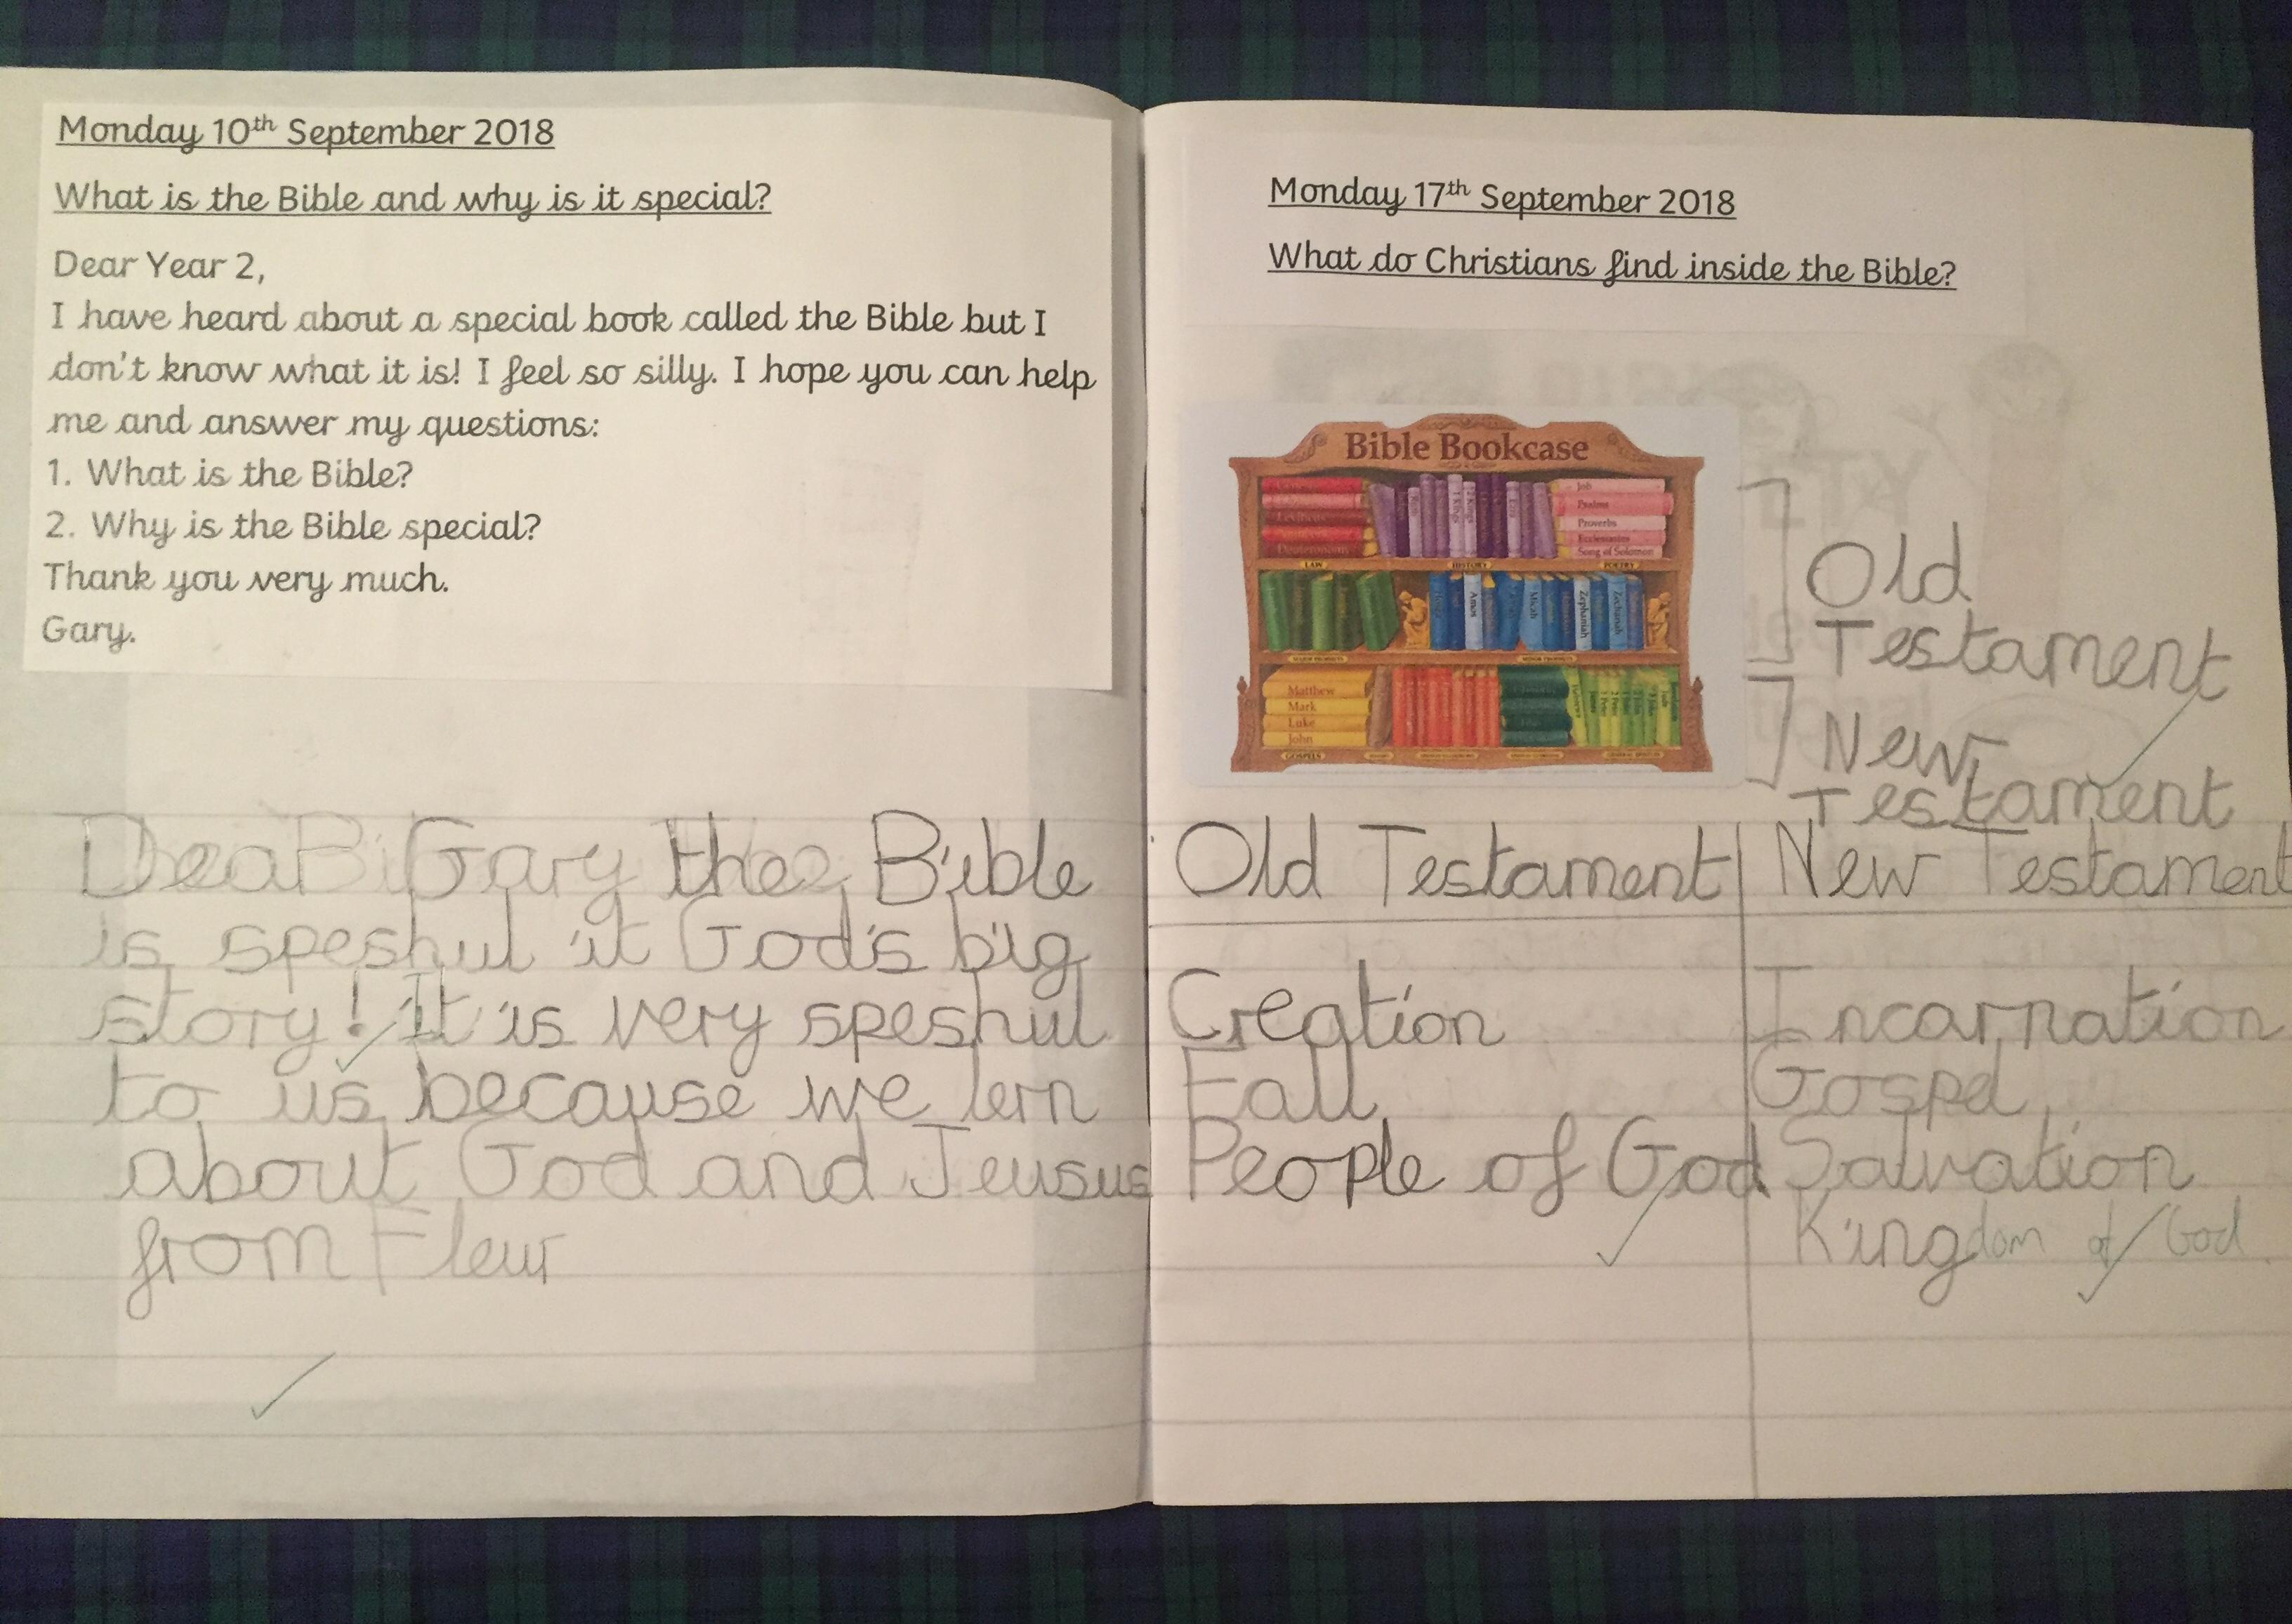 Monday 10th September 2018
What is the Bible and why is it special?
Dear Year 2,
I have heard about a special book called the Bible but I
don't know what it is! I feel so silly. I hope you can help
me and answer my questions:
1. What is the Bible?
2. Why is the Bible special?
Thank you very much.
Gary.
Dear Gary the Bible
is speshul it God's big
story! It is very speshul
to us because we lern
about God and Jeusus
from Fleur
Monday 17th September 2018
What do Christians find inside the Bible?
Bible Bookcase
Leviticus
Deuteronomy
Job
Psalms
Proverbs
Ecclesiastes
Song of Solomon
LAW
HISTORY
POETRY
Amos
Micah
Zephaniah
Zechariah
MAJOR PROPHETS
MINOR PROPHETS
Matthew
Mark
Luke
John
GOSPELS
Old
Testament
New
Testament
Old Testament
New Testament
Creation
Incarnation
Fall
Gospel
People of God
Salvation
Kingdom of God